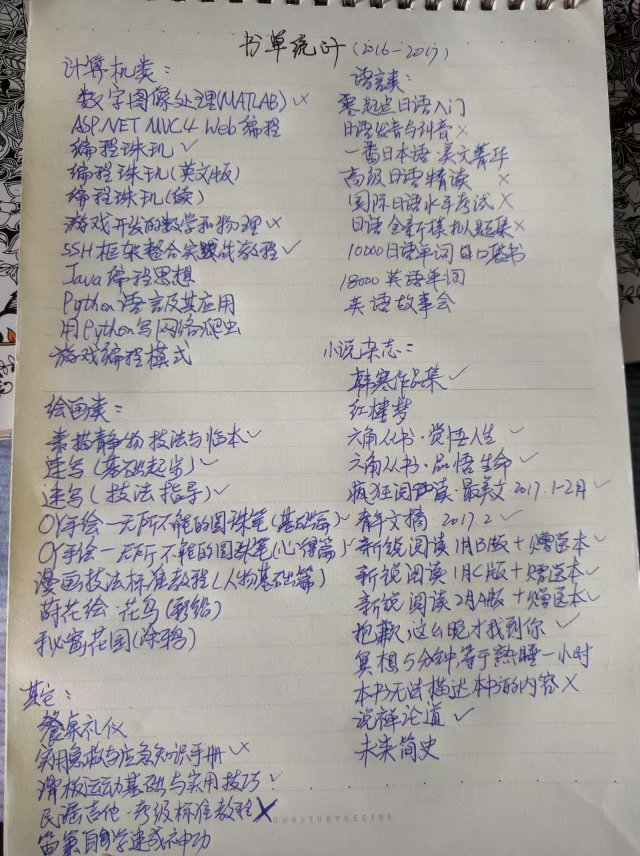 书单统计(2016-2017)
计算机类:
数字图像处理(MATLAB)✓×
ASP.NET MVC4 Web编程
编程珠玑 ✓
编程珠玑(英文版)
编程珠玑(续)
游戏开发的数学和物理 ×
SSH框架整合实战教程 ✓
Java编程思想
Python语言及其应用
用Python写网络爬虫
游戏编程模式
绘画类:
素描静物技法与临本 ✓
速写(基础起步) ✓
速写(技法指导) ✓
OY手绘一无所不能的圆珠笔(基础篇) ✓
OY手绘一无所不能的圆珠笔(心得篇) ✓
漫画技法标准教程(人物基础篇)
莳花绘·花鸟(彩铅)
秘密花园(涂鸦)
其它:
餐桌礼仪
实用急救与应急知识手册 ✓×
滑板运动基础与实用技巧 ✓
民谣吉他·考级标准教程 ×
笛箫自学速成神功
语言类:
零起点日语入门
日语发音与纠音 ×
一番日本语·美文菁华
高级日语精读 ×
国际日语水平考试 ×
日语全新模拟题集 ×
10000日语单词口袋书
18000英语单词
英语故事会
小说杂志:
韩寒作品集 ✓
红楼梦
六角丛书·觉悟人生 ✓
六角丛书·品悟生命 ✓
疯狂阅读·最美文 2017.1-2月 ✓
青年文摘 2017.2 ✓
新锐阅读 1月B版+赠送本 ✓
新锐阅读 1月C版+赠送本 ✓
新锐阅读 2月A版+赠送本 ✓
抱歉,这么晚才找到你 ✓
冥想5分钟,等于熟睡一小时
本书无法描述本书的内容 ×
说禅论道 ✓
未来简史
YOURSTORYBEGINS